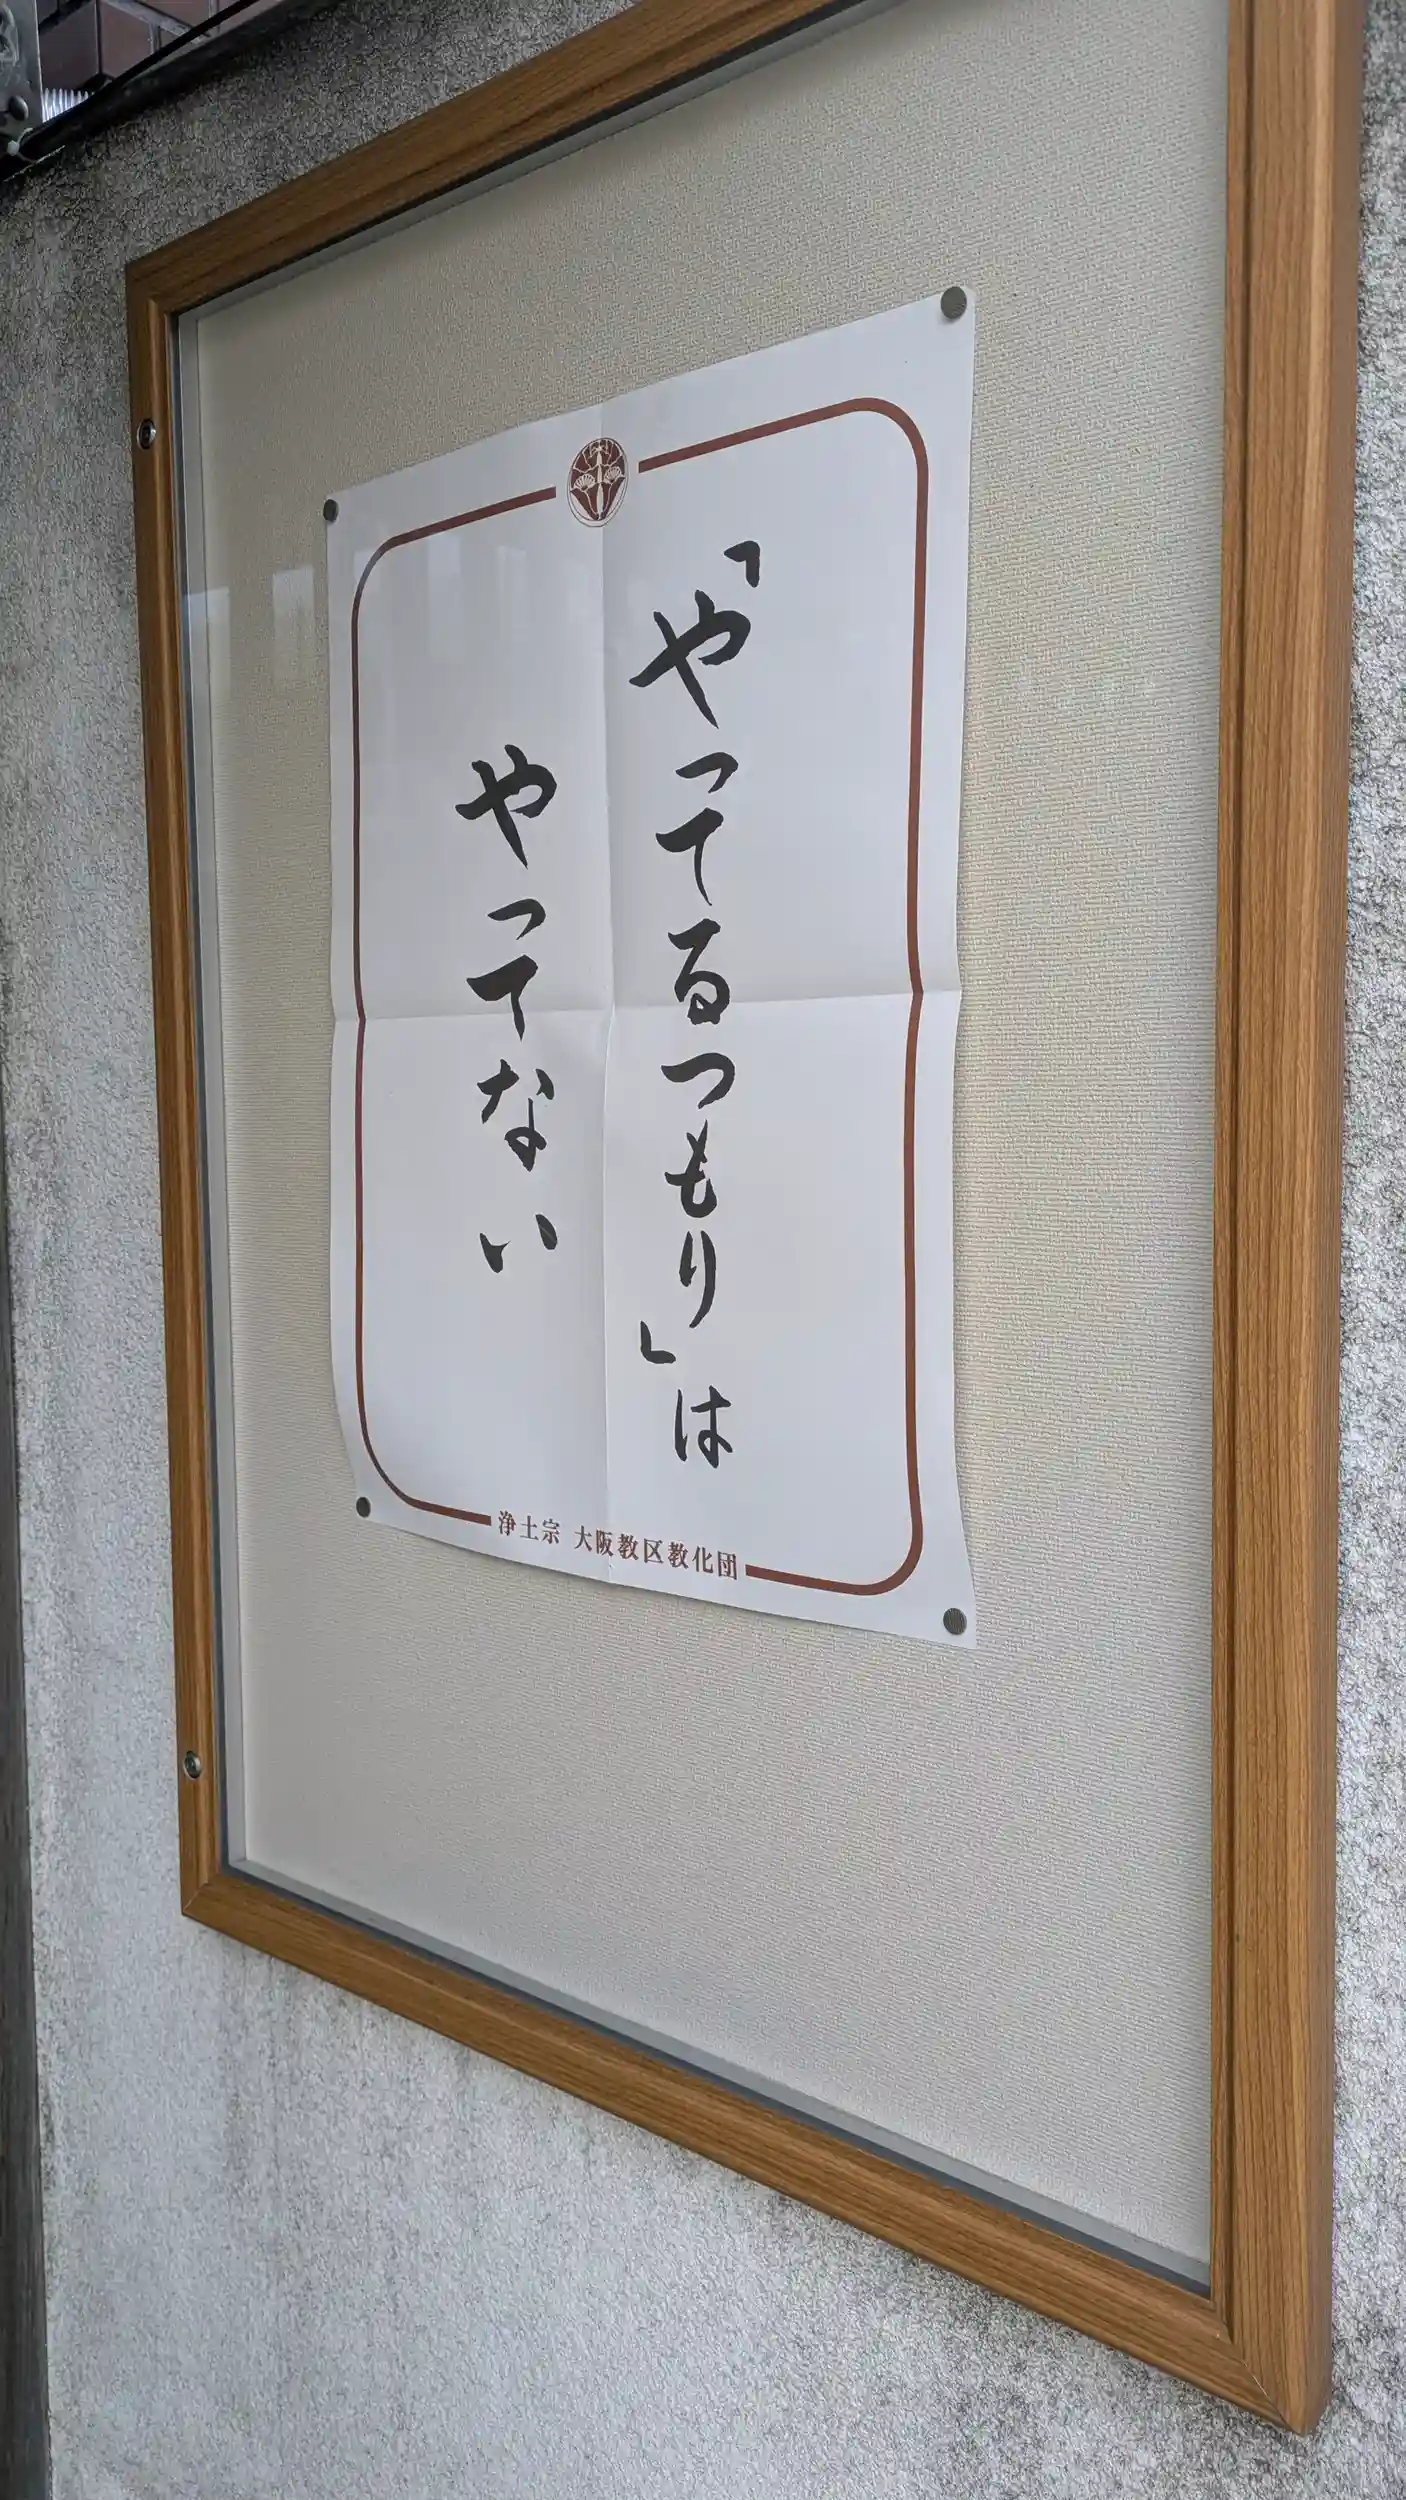 「やってるつもり」は
やってない
浄土宗 大阪教区教化団